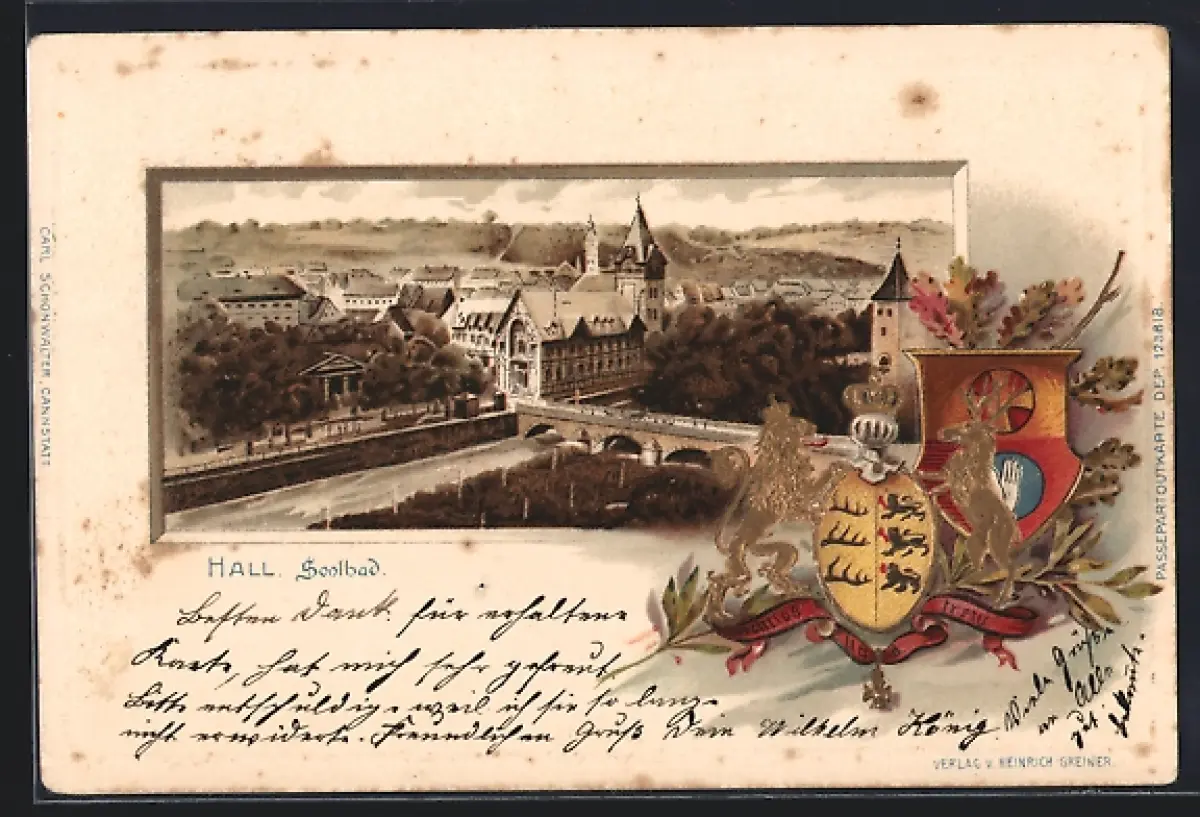 CARL SCHÖNWALTER, CANNSTATT
PASSEPARTOUTKARTE DEP. 123818.
HALL. Soolbad.
Besten Dank. für erhaltene
Karte, hat mich sehr gefreut
Bitte entschuldige weil ich sie so lange
nicht erwiderte. Freundlichen Gruß Dein Wilhelm König
Viele Grüße
an Alle
VERLAG V. HEINRICH GREINER.